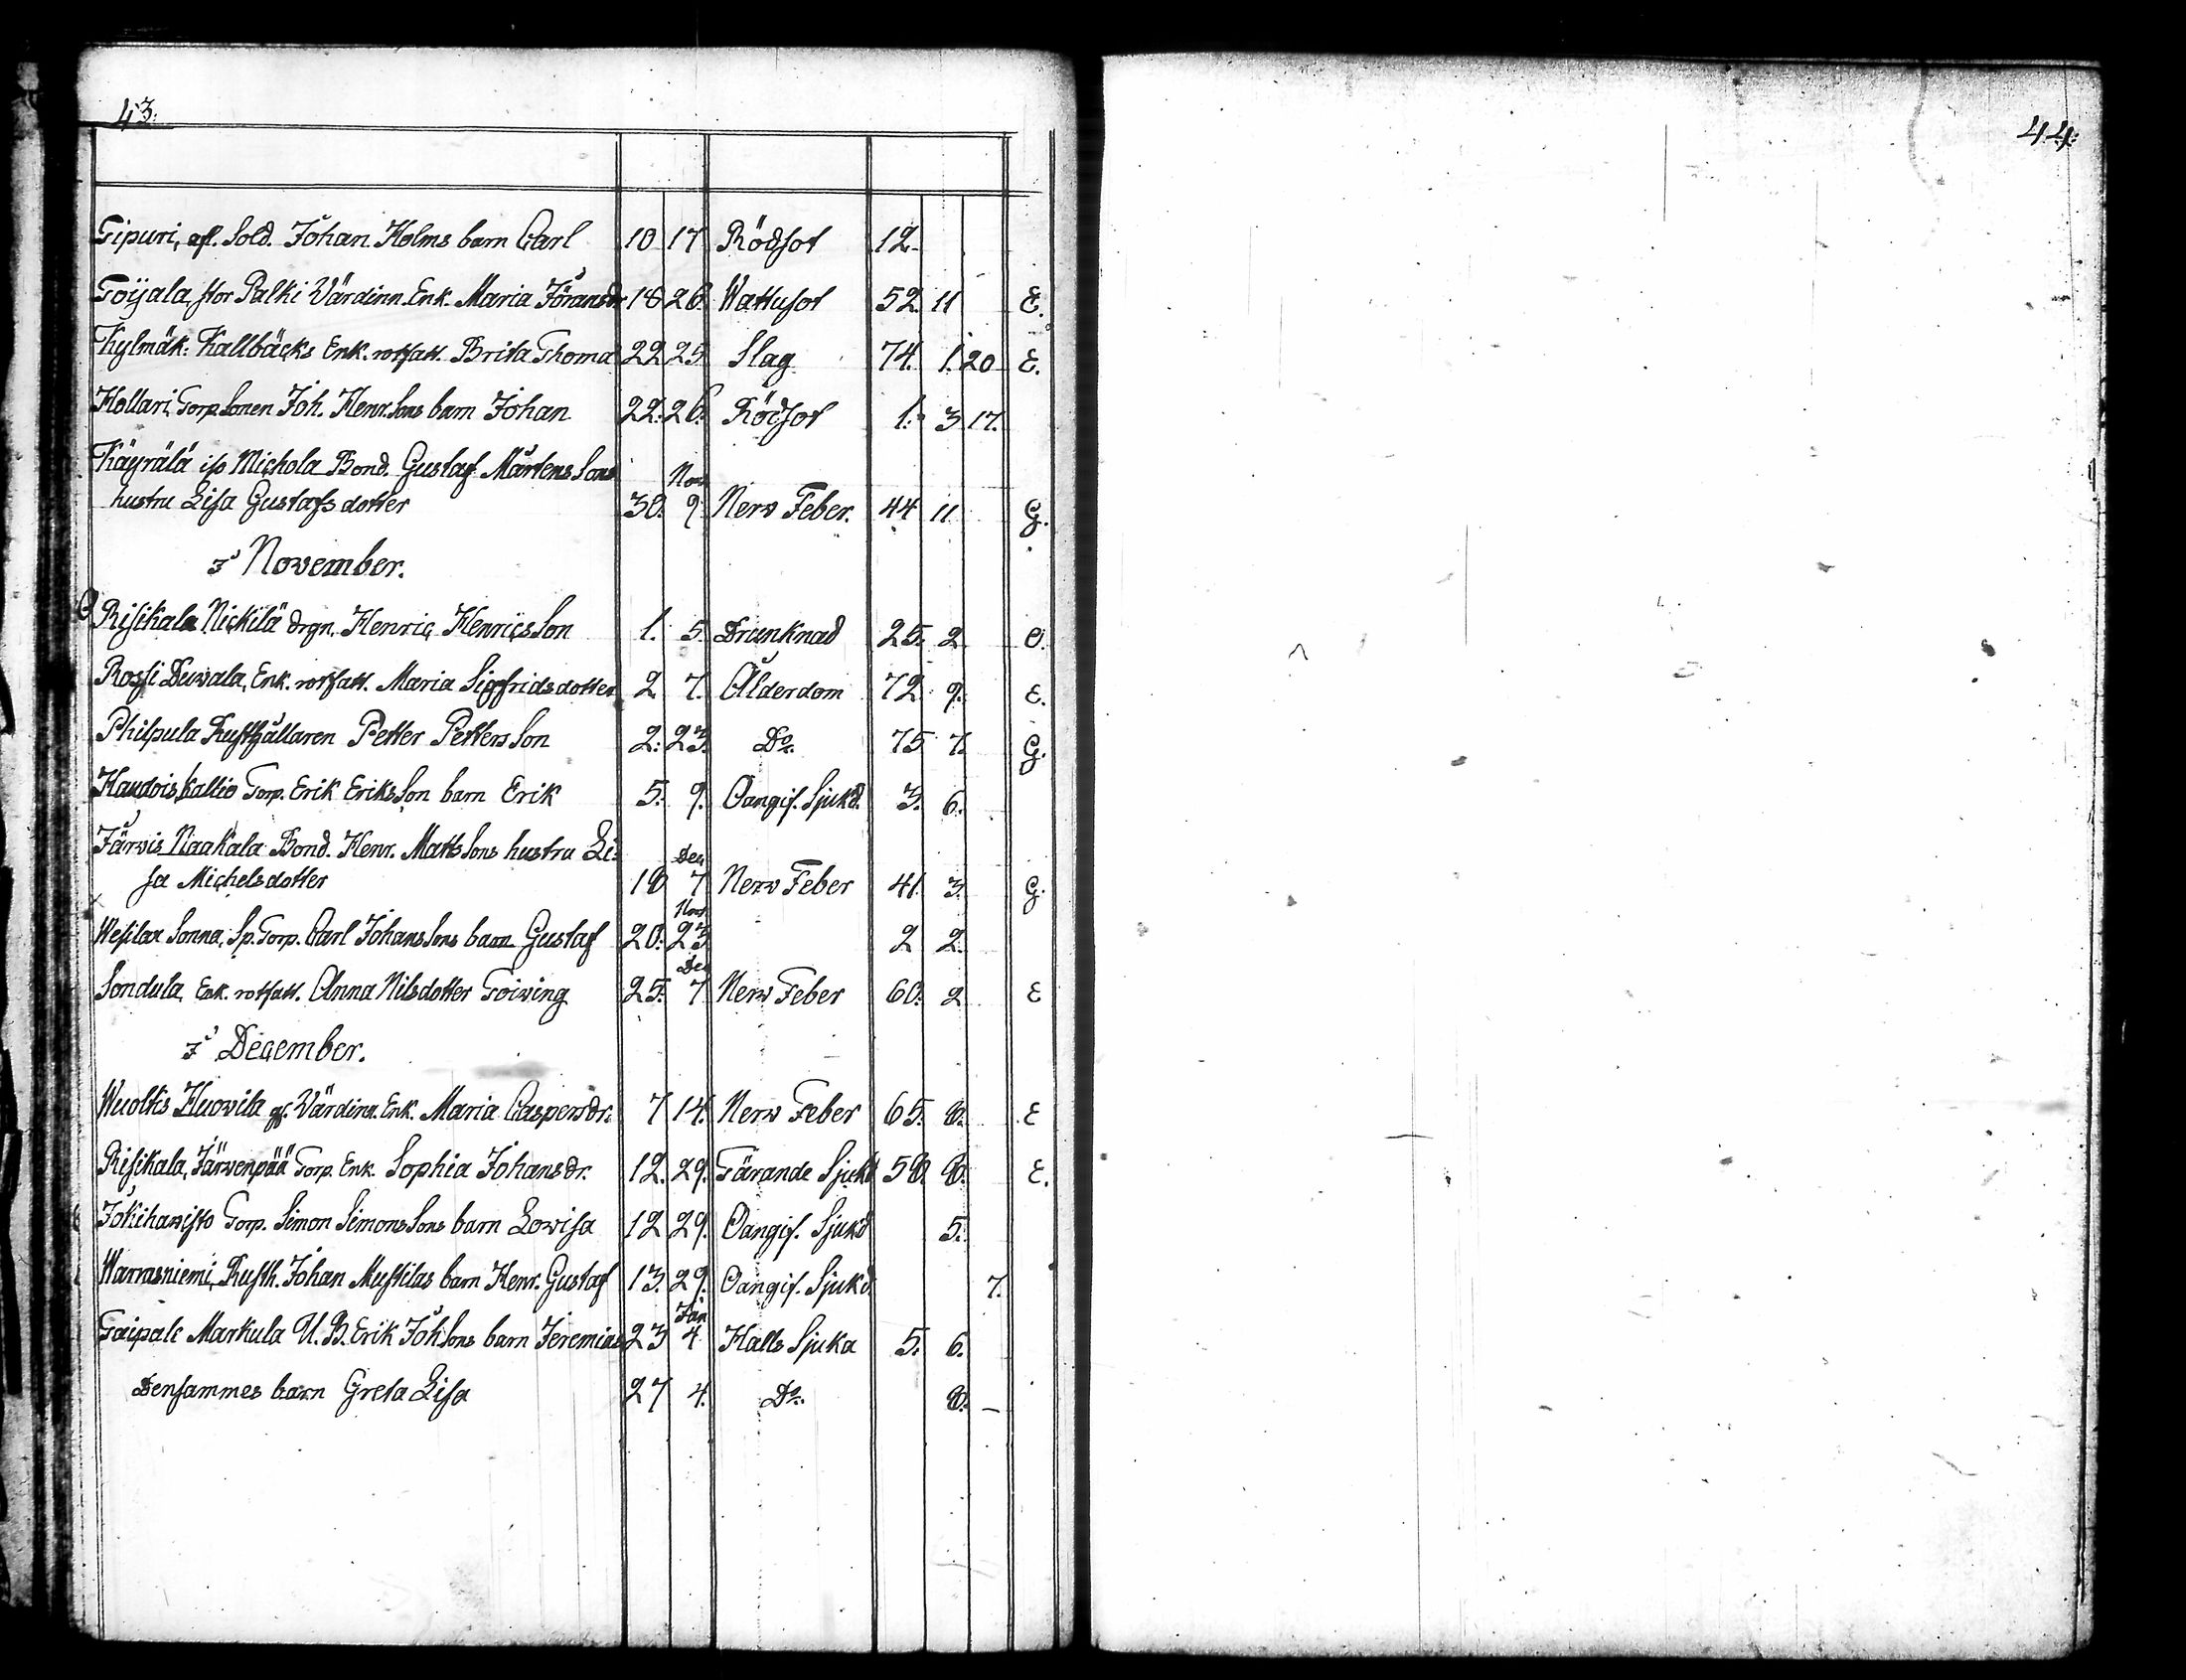 43.
44.
Tipuri, afl. Sold. Johan Holms barn Carl 10 17 Rödsot 12.
Toijala, stor Palki Värdinn. Enk. Maria Jöransdr 18 26. Wattusot 52. 11 E.
Kylmäk: Kallbäcks Enk. rotfatt. Brita Thoma 22 25 Slag 74. 1. 20 E.
Hollari, Torp Sonen Joh. Henr. Sons barn Johan 22. 26. Rödsot 1. 3. 17.
Käyrälä iso Michola Bond. Gustaf Mårtens Sons Nov
hustru Lisa Gustafs dotter 30. 9. Nerv Feber. 44 11 G.
I November.
Risikala Nickilä drgn. Henric Henrics Son 1. 5. Drunknad 25. 2. O.
Rossi Duvala, Enk. rotfatt. Maria Sigfridsdotter 2 7. Ålderdom 72. 9. E.
Philpula Rusthållaren Petter Petters Son 2. 23. Do. 75 7. G.
Haudois Kallio Torp. Erik Eriks Son barn Erik 5. 9. Oangif. Sjukd. 3. 6.
Järvis Naakala Bond. Henr. Matts Sons hustru Li= Dec
sa Michelsdotter 18 7 Nerv Feber 41. 3. G.
Wesilax Sonna, Sp. Torp. Carl Johans Sons barn Gustaf 20. Nov 23 2 2.
Sondula, Enk. rotfatt. Anna Nilsdotter Toiving 25. Dec 7 Nerv Feber 60. 2 E
I December.
Wuolkis Huovila gf. Värdinn. Enk. Maria Caspersdr. 7 14. Nerv Feber 65. 8. E
Risikala, Järvenpää Torp. Enk. Sophia Johansdr. 12. 29. Tärande Sjukd 58 8. E.
Jokihavisto Torp. Simon Simons Sons barn Lovisa 12 29. Oangif. Sjukd 5.
Warrasniemi, Rusth. Johan Mustilas barn Henr. Gustaf 13. 29. Oangif. Sjukd. 7.
Taipale Markula U. B. Erik Joh Sons barn Jeremias 23 Jan 4 Halls Sjuka 5. 6.
Densammes barn Greta Lisa 27 4. Do. 8. –